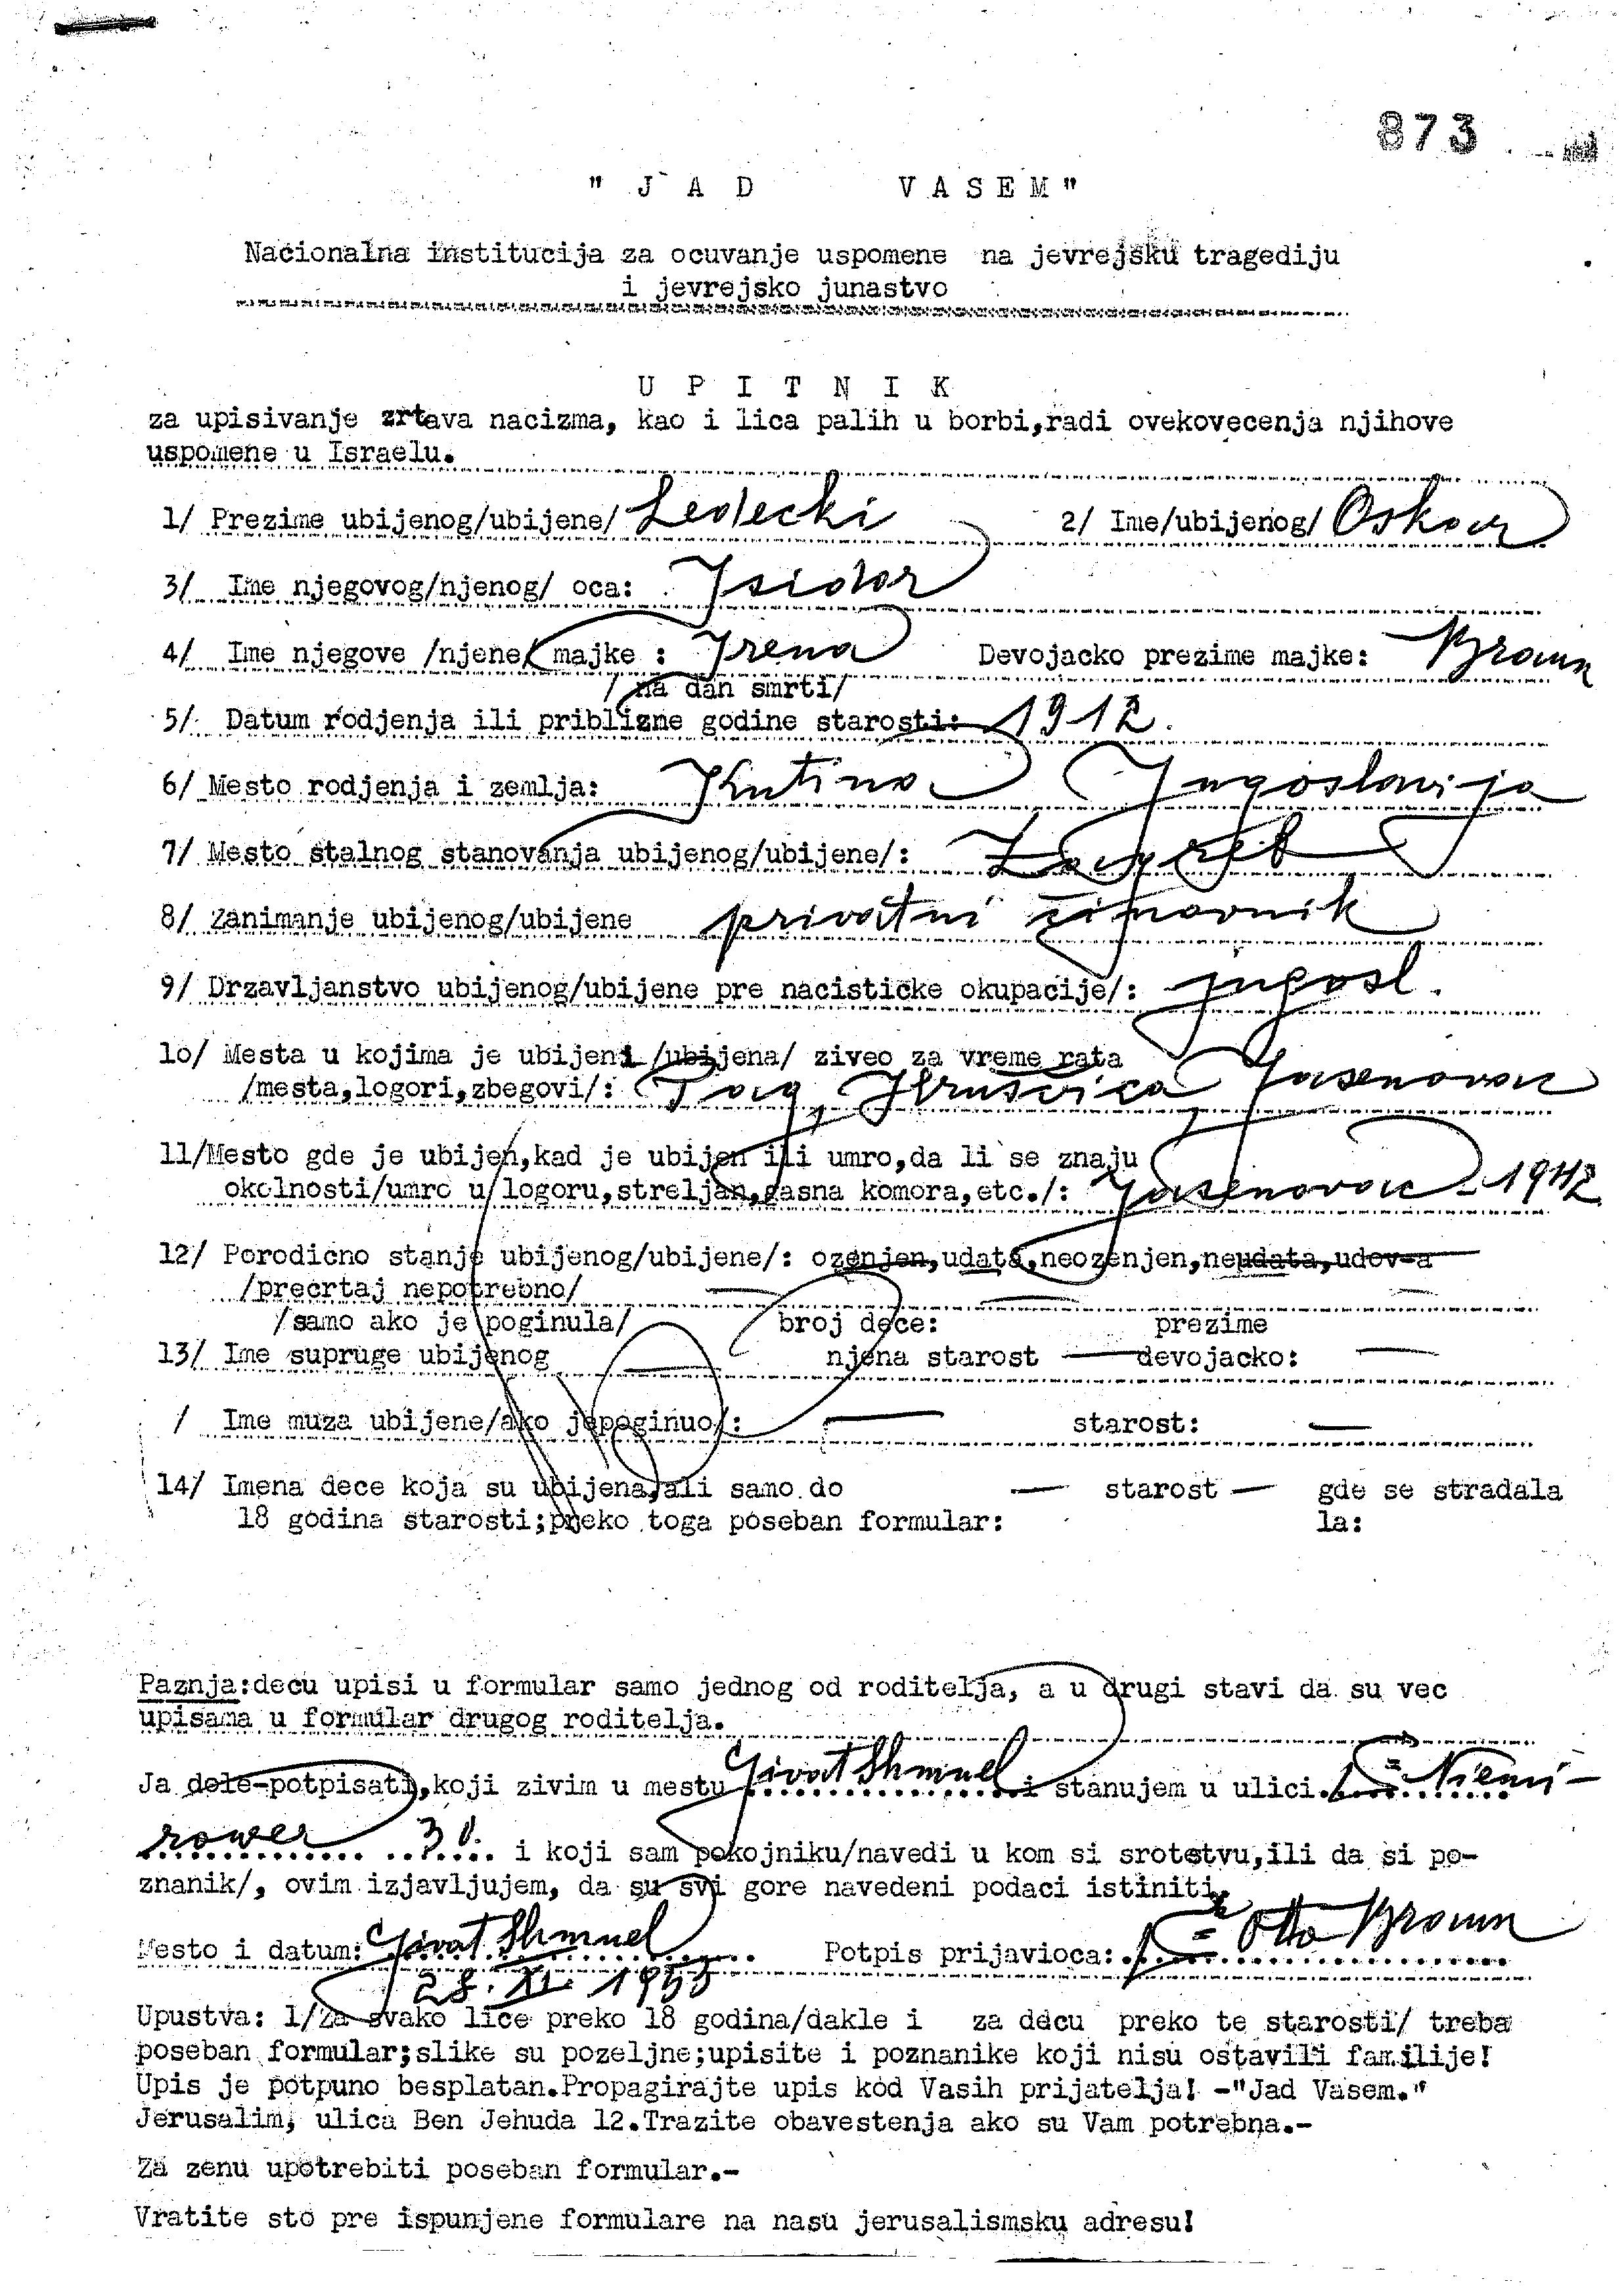 873
" J A D VASEM"
Nacionalna institucija za ocuvanje uspomene na jevrejsku tragediju
i jevrejsko junastvo
U P I T N I K
za upisivanje zrtava nacizma, kao i lica palih u borbi,radi ovekovecenja njihove
uspomene u Israelu.
1/ Prezime ubijenog/ubijene/ Ledecki 2/ Ime/ubijenog/ Oskar
3/ Ime njegovog/njenog/ oca: Isidor
4/ Ime njegove /njene/ majke : Irena Devojacko prezime majke: Braun
/ na dan smrti/
5/ Datum rodjenja ili priblizne godine starosti: 1912.
6/ Mesto rodjenja i zemlja: Kutina Jugoslavija
7/ Mesto stalnog stanovanja ubijenog/ubijene/: Zagreb
8/ Zanimanje ubijenog/ubijene privatni činovnik
9/ Drzavljanstvo ubijenog/ubijene pre nacisticke okupacije/: jugosl.
10/ Mesta u kojima je ubijeni /ubijena/ ziveo za vreme rata
/mesta,logori,zbegovi/: Zag, Kruščica Jasenovac
11/Mesto gde je ubijen,kad je ubijen ili umro,da li se znaju
okolnosti/umro u logoru,streljan,gasna komora,etc./: Jasenovac - 1942
12/ Porodicno stanje ubijenog/ubijene/: ozenjen,udata,neozenjen,neudata,udov-a
/precrtaj nepotrebno/
/samo ako je poginula/ broj dece: prezime
13/ Ime supruge ubijenog — njena starost — devojacko: —
/ Ime muza ubijene/ako jepoginuo/: — starost: —
14/ Imena dece koja su ubijena,ali samo do — starost — gde se stradala
18 godina starosti;preko toga poseban formular: la:
Paznja:decu upisi u formular samo jednog od roditelja, a u drugi stavi da su vec
upisana u formular drugog roditelja.
Ja dole-potpisati,koji zivim u mestu Givat Shmuel i stanujem u ulici. Niemi-
rower 30. i koji sam pokojniku/navedi u kom si srotstvu,ili da si po-
znanik/, ovim izjavljujem, da su svi gore navedeni podaci istiniti.
Mesto i datum: Givat Shmuel Potpis prijavioca: Otto Braun
28. XI. 1955
Upustva: 1/Za svako lice preko 18 godina/dakle i za decu preko te starosti/ treba
poseban formular;slike su pozeljne;upisite i poznanike koji nisu ostavili familije!
Upis je potpuno besplatan.Propagirajte upis kod Vasih prijatelja! -"Jad Vasem."
Jerusalim, ulica Ben Jehuda 12.Trazite obavestenja ako su Vam potrebna.-
Za zenu upotrebiti poseban formular.-
Vratite sto pre ispunjene formulare na nasu jerusalismsku adresu!